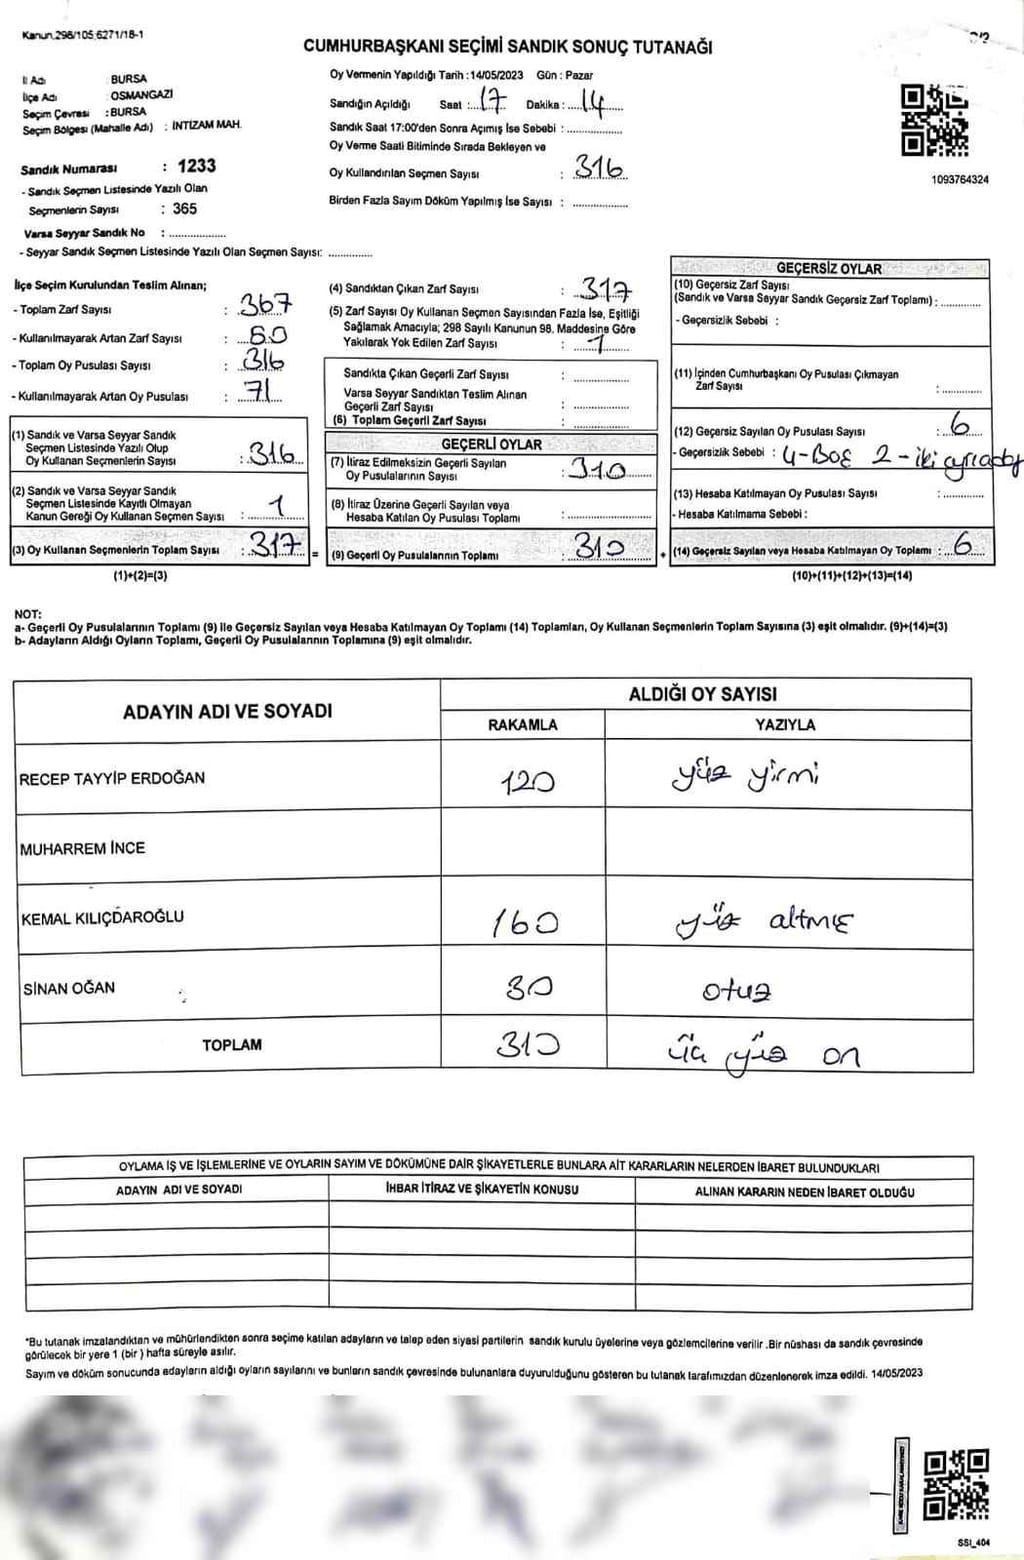 Kanun.298/105;6271/18-1
CUMHURBAŞKANI SEÇİMİ SANDIK SONUÇ TUTANAĞI
İl Adı BURSA
İlçe Adı OSMANGAZİ
Seçim Çevresi : BURSA
Seçim Bölgesi (Mahalle Adı) : İNTİZAM MAH.
Sandık Numarası : 1233
- Sandık Seçmen Listesinde Yazılı Olan
Seçmenlerin Sayısı : 365
Varsa Seyyar Sandık No : ..................
- Seyyar Sandık Seçmen Listesinde Yazılı Olan Seçmen Sayısı: ..............
Oy Vermenin Yapıldığı Tarih : 14/05/2023 Gün : Pazar
Sandığın Açıldığı Saat : 17 Dakika : 14
Sandık Saat 17:00'den Sonra Açımış İse Sebebi : ..................
Oy Verme Saati Bitiminde Sırada Bekleyen ve
Oy Kullandırılan Seçmen Sayısı : 316
Birden Fazla Sayım Döküm Yapılmış İse Sayısı : ..................
1093764324
İlçe Seçim Kurulundan Teslim Alınan;
- Toplam Zarf Sayısı : 367
- Kullanılmayarak Artan Zarf Sayısı : 50
- Toplam Oy Pusulası Sayısı : 316
- Kullanılmayarak Artan Oy Pusulası : 71
(1) Sandık ve Varsa Seyyar Sandık
Seçmen Listesinde Yazılı Olup
Oy Kullanan Seçmenlerin Sayısı : 316
(2) Sandık ve Varsa Seyyar Sandık
Seçmen Listesinde Kayıtlı Olmayan
Kanun Gereği Oy Kullanan Seçmen Sayısı : 1
(3) Oy Kullanan Seçmenlerin Toplam Sayısı : 317
(1)+(2)=(3)
(4) Sandıktan Çıkan Zarf Sayısı : 317
(5) Zarf Sayısı Oy Kullanan Seçmen Sayısından Fazla İse, Eşitliği
Sağlamak Amacıyla; 298 Sayılı Kanunun 98. Maddesine Göre
Yakılarak Yok Edilen Zarf Sayısı : 1
Sandıkta Çıkan Geçerli Zarf Sayısı : ..................
Varsa Seyyar Sandıktan Teslim Alınan
Geçerli Zarf Sayısı : ..................
(6) Toplam Geçerli Zarf Sayısı : ..................
GEÇERLİ OYLAR
(7) İtiraz Edilmeksizin Geçerli Sayılan
Oy Pusulalarının Sayısı : 310
(8) İtiraz Üzerine Geçerli Sayılan veya
Hesaba Katılan Oy Pusulası Toplamı : ..................
= (9) Geçerli Oy Pusulalarının Toplamı : 310
GEÇERSİZ OYLAR
(10) Geçersiz Zarf Sayısı
(Sandık ve Varsa Seyyar Sandık Geçersiz Zarf Toplamı) : .............
- Geçersizlik Sebebi :
(11) İçinden Cumhurbaşkanı Oy Pusulası Çıkmayan
Zarf Sayısı : .............
(12) Geçersiz Sayılan Oy Pusulası Sayısı : 6
- Geçersizlik Sebebi : 4-BOŞ 2-iki ayrı aday
(13) Hesaba Katılmayan Oy Pusulası Sayısı : .............
- Hesaba Katılmama Sebebi :
+ (14) Geçersiz Sayılan veya Hesaba Katılmayan Oy Toplamı : 6
(10)+(11)+(12)+(13)=(14)
NOT:
a- Geçerli Oy Pusulalarının Toplamı (9) ile Geçersiz Sayılan veya Hesaba Katılmayan Oy Toplamı (14) Toplamları, Oy Kullanan Seçmenlerin Toplam Sayısına (3) eşit olmalıdır. (9)+(14)=(3)
b- Adayların Aldığı Oyların Toplamı, Geçerli Oy Pusulalarının Toplamına (9) eşit olmalıdır.
ADAYIN ADI VE SOYADI
ALDIĞI OY SAYISI
RAKAMLA YAZIYLA
RECEP TAYYİP ERDOĞAN 120 yüz yirmi
MUHARREM İNCE
KEMAL KILIÇDAROĞLU 160 yüz altmış
SİNAN OĞAN 30 otuz
TOPLAM 310 üç yüz on
OYLAMA İŞ VE İŞLEMLERİNE VE OYLARIN SAYIM VE DÖKÜMÜNE DAİR ŞİKAYETLERLE BUNLARA AİT KARARLARIN NELERDEN İBARET BULUNDUKLARI
ADAYIN ADI VE SOYADI İHBAR İTİRAZ VE ŞİKAYETİN KONUSU ALINAN KARARIN NEDEN İBARET OLDUĞU
*Bu tutanak imzalandıktan ve mühürlendikten sonra seçime katılan adayların ve talep eden siyasi partilerin sandık kurulu üyelerine veya gözlemcilerine verilir .Bir nüshası da sandık çevresinde
görülecek bir yere 1 (bir ) hafta süreyle asılır.
Sayım ve döküm sonucunda adayların aldığı oyların sayılarını ve bunların sandık çevresinde bulunanlara duyurulduğunu gösteren bu tutanak tarafımızdan düzenlenerek imza edildi. 14/05/2023
SSI_404